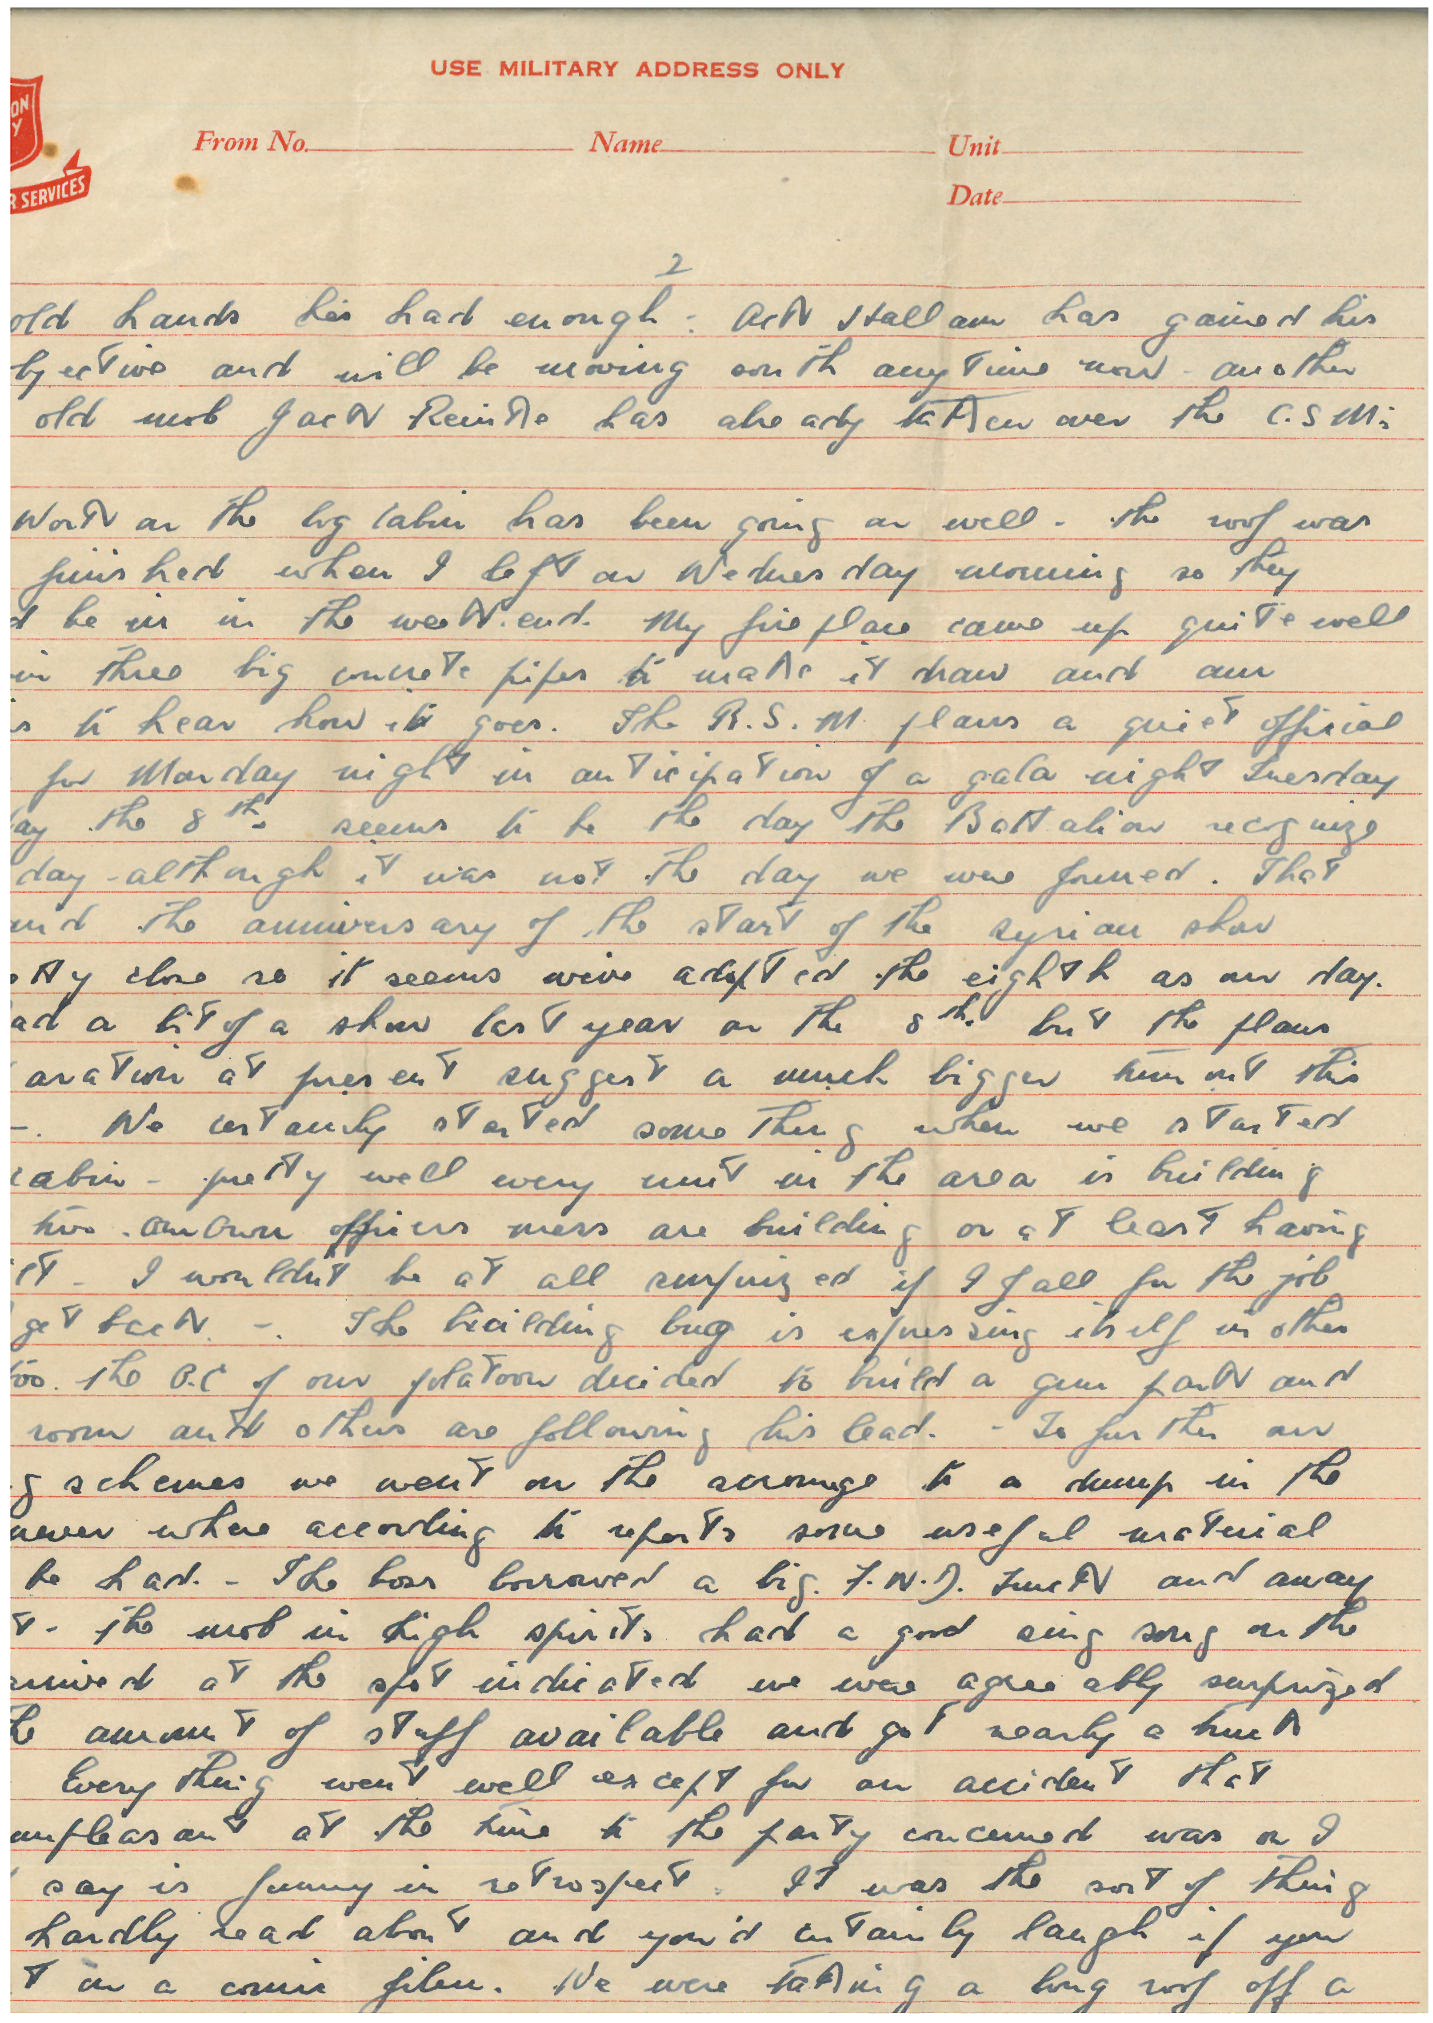 USE MILITARY ADDRESS ONLY
From No. Name Unit
Date
R SERVICES
2
old hands has had enough. Hallam has gained his
bjective and will be moving south anytime now - another
old mob Jack has already taken over the C.S.M's
Work on the log cabin has been going on well - the roof was
finished when I left on Wednesday morning so they
d be in in the week.end. My fireplace came up quite well
in three big concrete pipes to make it draw and am
s to hear how it goes. The R.S.M. plans a quiet official
for Monday night in anticipation of a gala night Tuesday
ay the 8th. seems to be the day the Battalion recognize
day - although it was not the day we were formed. That
and the anniversary of the start of the Syrian show
etty close so it seems weive adopted the eighth as our day.
ad a bit of a show last year on the 8th. but the plans
aration at present suggest a much bigger turn out this
-. We certainly started something when we started
cabin - pretty well every unit in the area is building
too. our own officers mess are building or at least having
it - I wouldn't be at all surprized if I fall for the job
get back -. The building bug is expressing itself in other
too. the O.C of our platoon decided to build a gun park and
room and others are following his lead. - To further our
g schemes we went on the scrounge to a dump in the
never where according to reports some useful material
be had. - The boss borrowed a big F.W.D. truck and away
t - the mob in high spirits had a good sing song on the
arrived at the spot indicated we were agreeably surprized
he amount of stuff available and got nearly a truck
Everything went well except for an accident that
unpleasant at the time to the party concerned was or I
say is funny in retrospect. It was the sort of thing
hardly read about and you'd certainly laugh if you
t in a comic film. We were taking a long roof off a